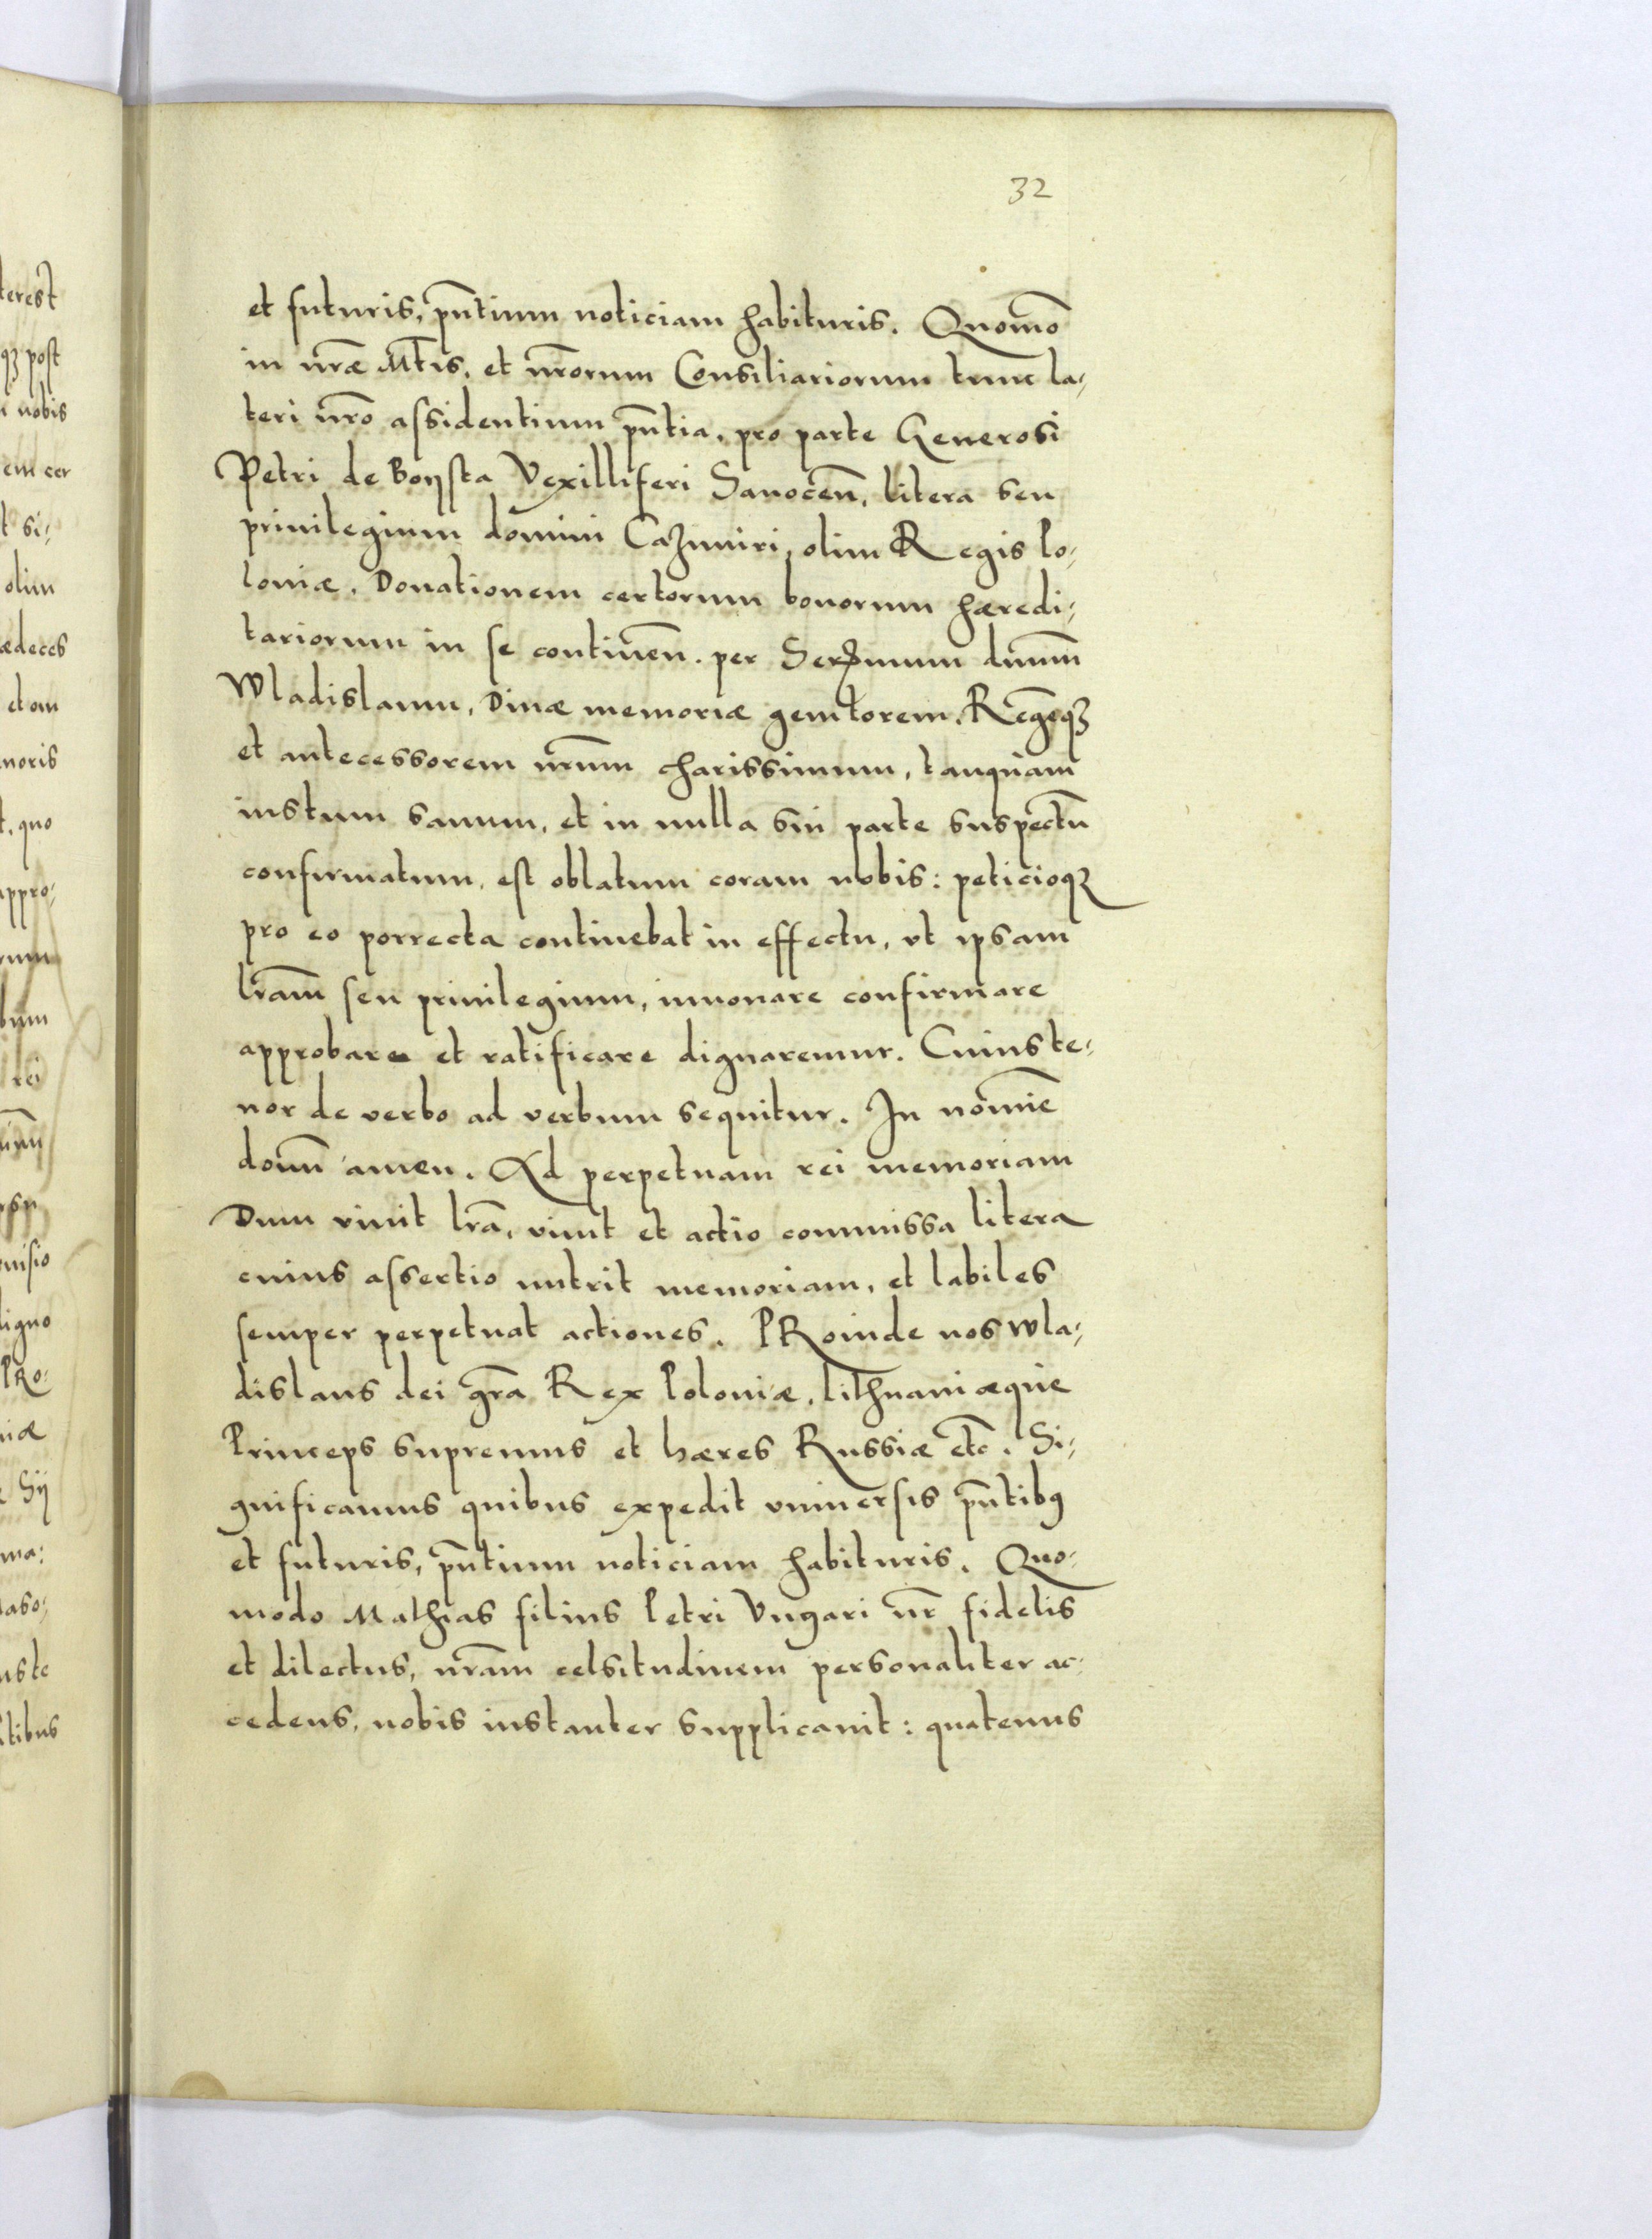 32
et futuris, pñtium noticiam habituris. Quomõ
in nr̃æ Mt̃is, et nr̃orum Consiliariorum tunc la-
teri nr̃o assidentium pñtia, pro parte Generosi
Petri de Boyska Vexilliferi Sanoceñ, litera seu
priuilegium domini Cazimiri, olim Regis Po-
loniæ. Donationem certorum bonorum hæredi-
tariorum in se contineñ. per Ser̃mum dnum̃
Wladislaum, Diuæ memoriæ genitorem. Regẽqꝫ
et antecessorem nr̃um charissimum, tanquam
iustum sanum, et in nulla sui parte suspectũ
confirmatum, est oblatum coram nobis: peticioqꝫ
pro eo porrecta continebat in effectu, vt ipsam
lr̃am seu priuilegium, innouare confirmare
approbare et ratificare dignaremur. Cuius te-
nor de verbo ad verbum sequitur. In nomĩe
domĩ amen. Ad perpetuam rei memoriam
Dum viuit lr̃a, viuit et actio commissa litera
cuius assertio nutrit memoriam, et labiles
semper perpetuat actiones. PRoinde nos Wla-
dislaus dei gr̃a Rex Poloniæ, Lithuaniæque
Princeps supremus et hæres Russiæ etc̃. Si-
gnificamus quibus expedit vniuersis pñtibꝯ
et futuris, pñtium noticiam habituris. Quo-
modo Mathias filius Petri Vngari nr̃ fidelis
et dilectus, nr̃am celsitudinem personaliter ac-
cedens, nobis instanter supplicauit: quatenus